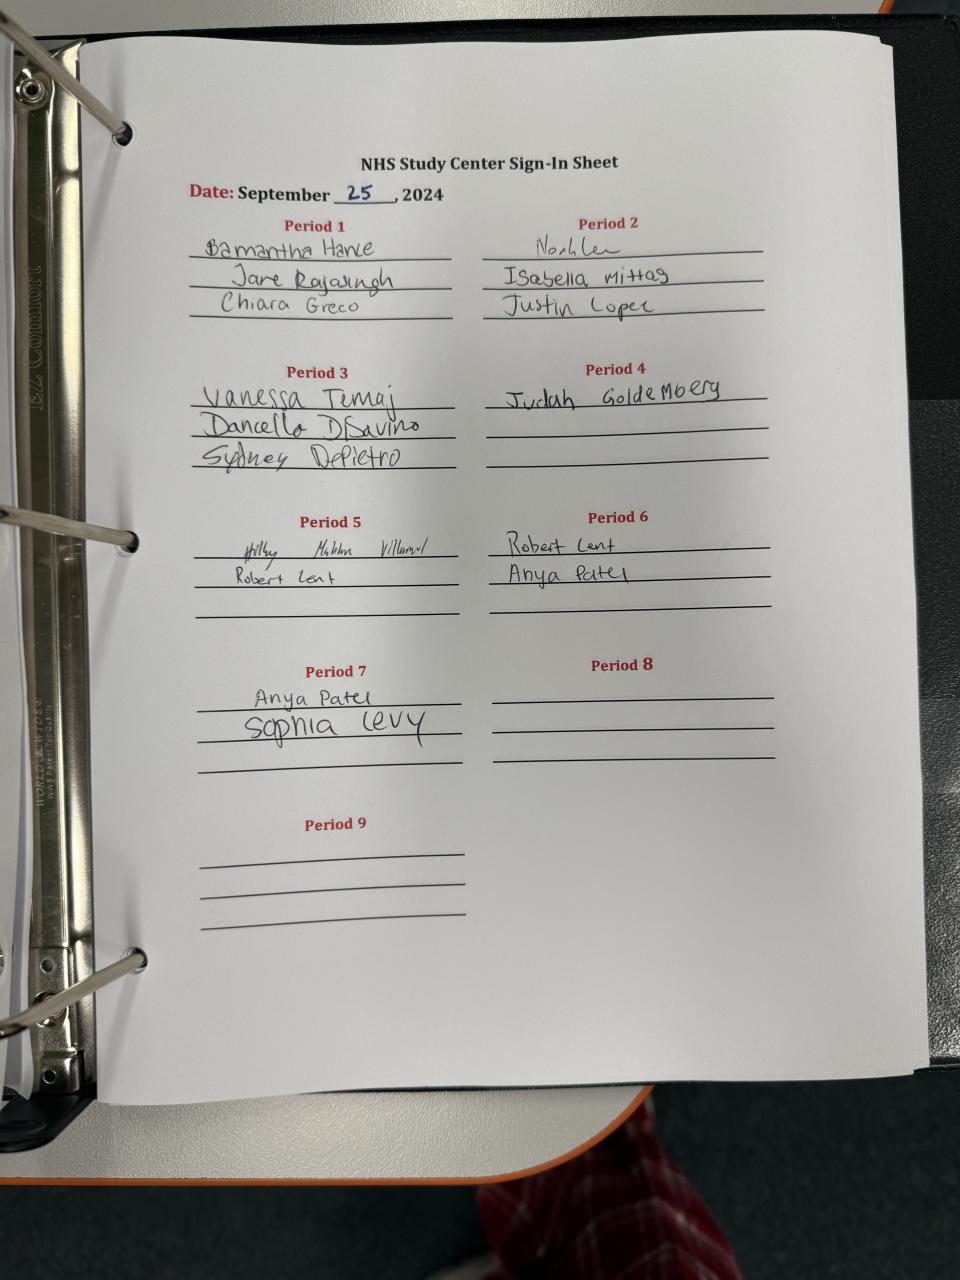 NHS Study Center Sign-In Sheet
Date: September 25, 2024
Period 1
Samantha Hance
Jane Rajasingh
Chiara Greco
Period 2
Isabella Mittag
Justin Loper
Period 3
Vanessa Temaj
Dancella DiSavino
Sydney DePietro
Period 4
Judah Goldemberg
Period 5
Robert Lent
Period 6
Robert Lent
Anya Patel
Period 7
Anya Patel
Sophia Levy
Period 8
Period 9
EZ Comfort